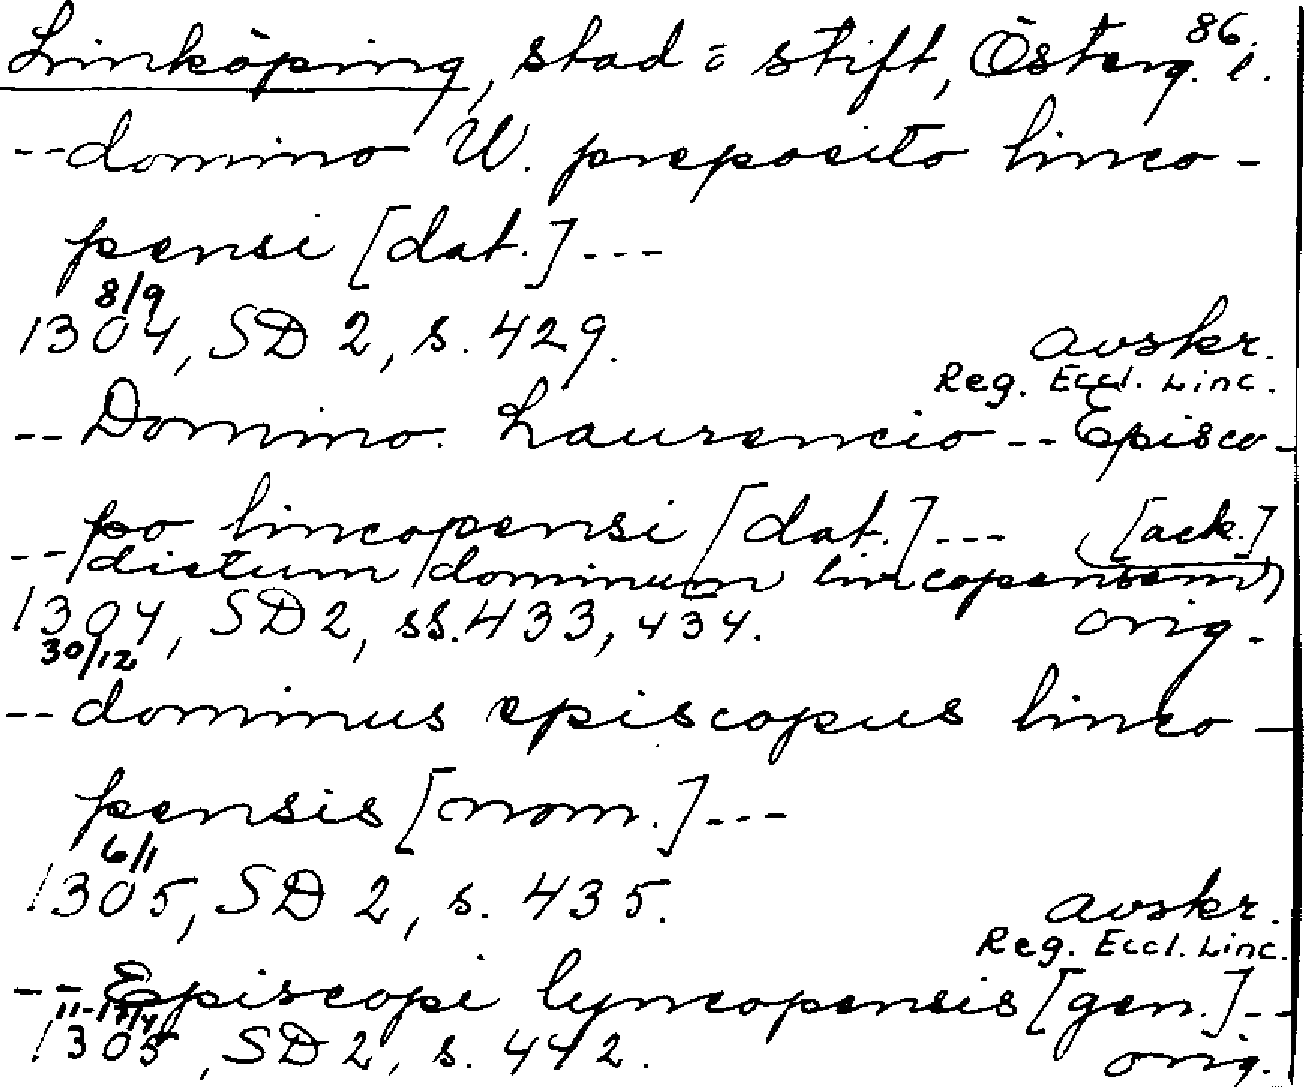 Linköping, stad o stift, Österg. 86 i.
-- domino W. preposito linco-
pensi [dat.] ---
8/9
1304, SD 2, s. 429. avskr.
Reg. Eccl. Linc.
-- Domino Laurencio -- Episco-
po lincopensi [dat.] --- [ack.]
-- dictum dominum lincopensem
1304, SD 2, ss. 433, 434. orig.
30/12
-- dominus episcopus linco-
pensis [nom.] ---
6/1
1305, SD 2, s. 435. avskr.
Reg. Eccl. Linc.
-- Episcopi lyncopensis [gen.] --
1305, SD 2, s. 442. orig.